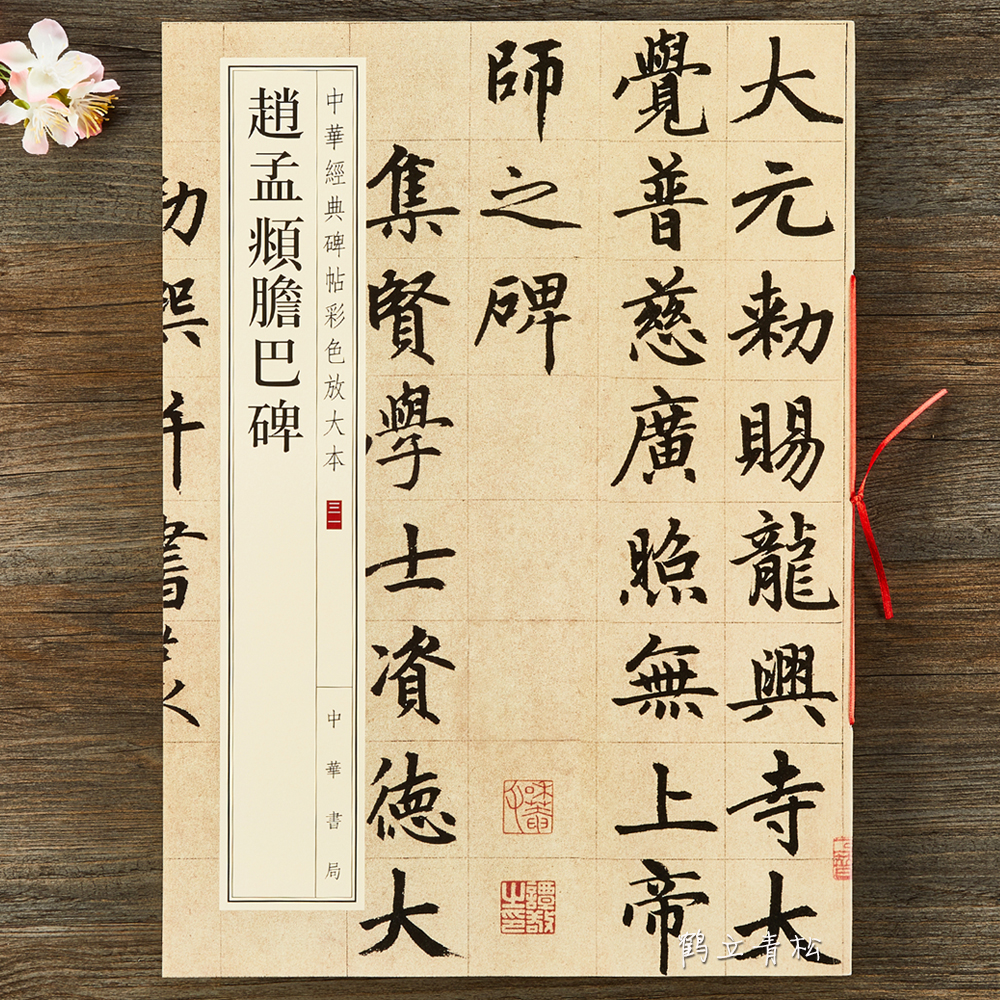 大元勑賜龍興寺大
覺普慈廣照無上帝
師之碑
譚敬之印
集賢學士資德大
中華經典碑帖彩色放大本
三一
中華書局
趙孟頫膽巴碑
鹤立青松